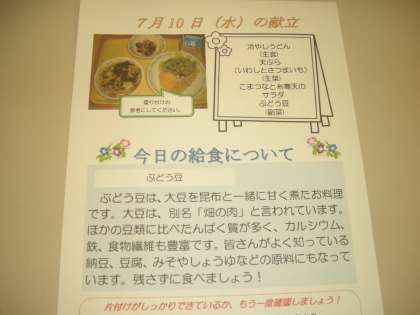 7月10日(水)の献立
冷やしうどん
(主食)
天ぷら
(いわしとさつまいも)
(主菜)
こまつなと糸寒天の
サラダ
ぶどう豆
(副菜)
盛り付けの
参考にしてください。
今日の給食について
ぶどう豆
ぶどう豆は、大豆を昆布と一緒に甘く煮たお料理
です。大豆は、別名「畑の肉」と言われています。
ほかの豆類に比べたんぱく質が多く、カルシウム、
鉄、食物繊維も豊富です。皆さんがよく知っている
納豆、豆腐、みそやしょうゆなどの原料にもなって
います。残さずに食べましょう!
片付けがしっかりできているか、もう一度確認しましょう!